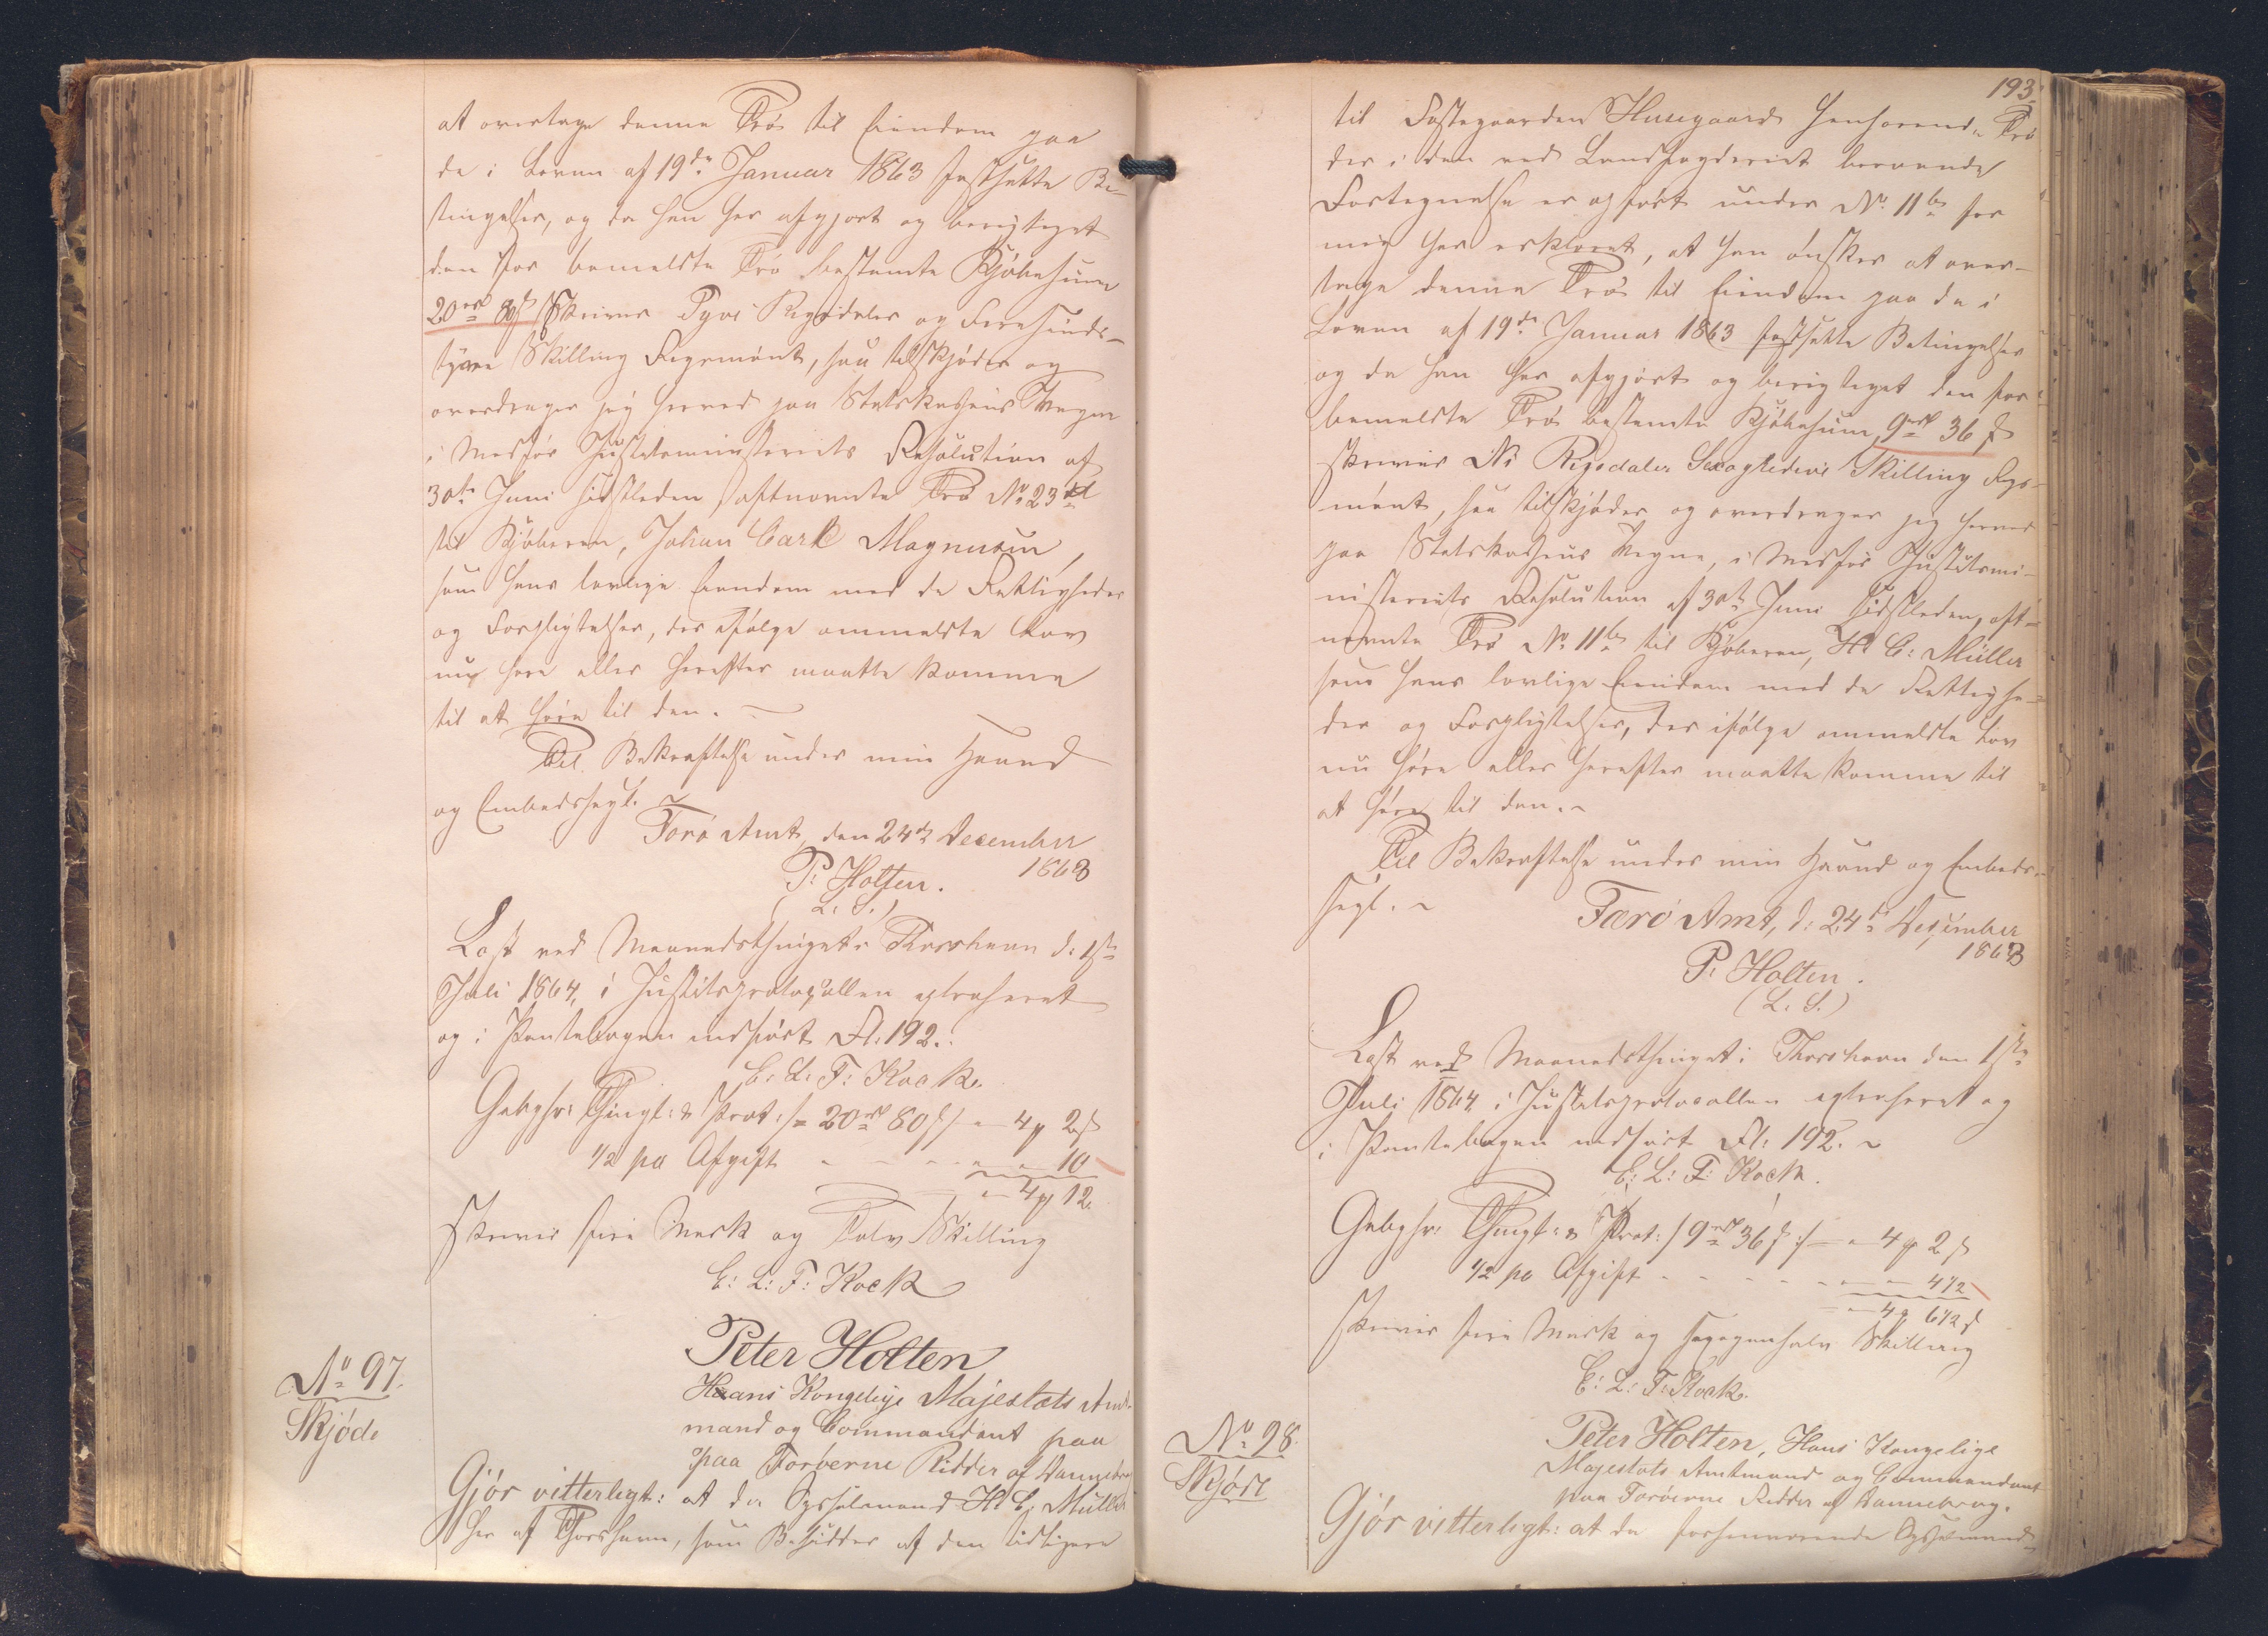 at overtage denne Trø til Eiendom paa
de i Loven af 19de Januar 1863 fastsatte Be-
tingelser, og da han har afgjort og berigtiget
den for bemeldte Trø bestemte Kjøbesum
20 rd 80 s skriver Tyve Rigsdaler og Firesinds-
tyve Skilling Rigsmønt, saa tilskjøder og
overdrager jeg herved paa Statskassens Vegne
i Medfør Justitsministeriets Resolution af
30te Juni sidstleden, oftnævnte Trø No 23
til Kjøberen, Johan Carl Magnusen,
som hans lovlige Eiendom med de Rettigheder
og Forpligtelser, der ifølge ommeldte Lov
nu høre eller herefter maatte komme
til at høre til den.
Til Bekræftelse under min Haand
og Embedssegl.
Færø Amt, den 24de December
1863
P: Holten.
(L. S.)
Læst ved Maanedsthinget i Thorshavn d: 1ste
Juli 1864, i Justitsprotocollen extraheret
og i Pantebogen indført Fl: 192.
C: L: F: Kock.
Gebyhr: Thingl: & Prot: /: 20 rd 80 s :/ - 4 # 2 s
1/2 pC Afgift - - - - 10
- 4 # 12.
skriver fire Mark og Tolv Skilling
C: L: F: Kock
No 97.
Skjøde
Peter Holten
Hans Kongelige Majestæts Amt-
mand og Commandant paa
paa Færøerne Ridder af Dannebrog
Gjør vitterligt: at da Sysselmand H C: Müller
her af Thorshavn, som Besidder af den tidligere
193
til Fæstegaarden Husegaard henhørende Trø
der i den ved Landfogderiet beroende
Fortegnelse er opført under No 11b for
mig har erklæret, at han ønsker at over-
tage denne Trø til Eiendom paa de i
Loven af 19de Januar 1863 fastsatte Betingelser
og da han har afgjort og berigtiget den for
bemeldte Trø bestemte Kjøbesum 9 rd 36 s
skriver Ni Rigsdaler Sexogtredive Skilling Rigs-
mønt, saa tilskjøder og overdrager jeg herved
paa Statskassens Vegne, i Medfør Justitsmi-
nisteriets Resolution af 30te Juni sidstleden, oft-
nævnte Trø No 11b til Kjøberen, H C: Müller
som hans lovlige Eiendom med de Rettighe-
der og Forpligtelser, der ifølge ommeldte Lov
nu høre eller herefter maatte komme til
at høre til den.
Til Bekræftelse under min Haand og Embeds-
segl.
Færø Amt, d: 24de December
1863
P: Holten.
(L. S.)
Læst ved Maanedsthinget i Thorshavn den 1ste
Juli 1864 i Justitsprotocollen extraheret og
i Pantebogen indført Fl: 192.
C: L: F: Kock.
Gebyhr: Thingl: & Prot: /: 9 rd 36 s :/ - 4 # 2 s
1/2 pC Afgift - - - - 4 1/2
- 4 # 6 1/2 s
skriver fire Mark og syvgenhalv Skilling
C: L: F: Kock.
No 98.
Skjøde
Peter Holten, Hans Kongelige
Majestæts Amtmand og Commandant
paa Færøerne Ridder af Dannebrog.
Gjør vitterligt: at da forhenværende Sysselmand